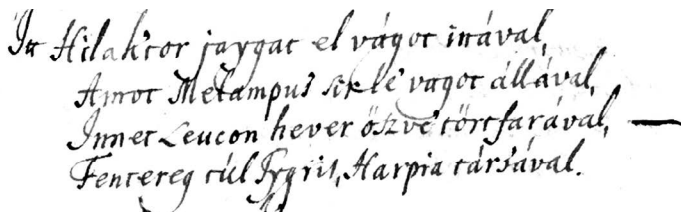 Itt Hilaktor jaygat el vágot inával,
Amot Melampus sikle vagot állával,
Innet Leucon hever öszve törtfarával, —
Fentereg túl Tygris, Harpia társával.